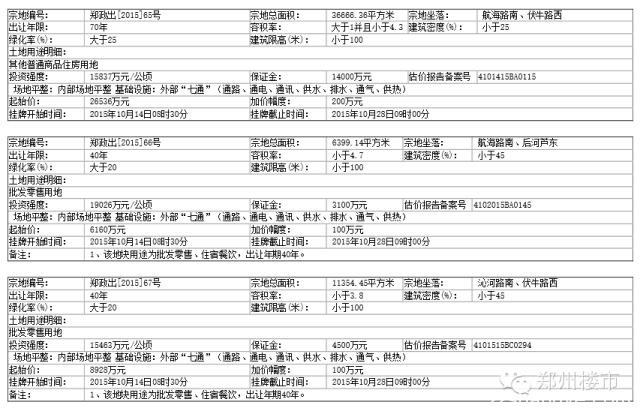 宗地编号: 郑政出[2015]65号 宗地总面积: 36666.36平方米 宗地坐落: 航海路南、伏牛路西
出让年限: 70年 容积率: 大于1并且小于4.3 建筑密度(%): 小于25
绿化率(%): 大于25 建筑限高(米): 小于100
土地用途明细:
其他普通商品住房用地
投资强度: 15837万元/公顷 保证金: 14000万元 估价报告备案号 4101415BA0115
场地平整: 内部场地平整 基础设施: 外部“七通”(通路、通电、通讯、供水、排水、通气、供热)
起始价: 26536万元 加价幅度: 200万元
挂牌开始时间: 2015年10月14日08时30分 挂牌截止时间: 2015年10月28日09时00分
宗地编号: 郑政出[2015]66号 宗地总面积: 6399.14平方米 宗地坐落: 航海路南、后河芦东
出让年限: 40年 容积率: 小于4.7 建筑密度(%): 小于45
绿化率(%): 大于20 建筑限高(米): 小于100
土地用途明细:
批发零售用地
投资强度: 19026万元/公顷 保证金: 3100万元 估价报告备案号 4102015BA0145
场地平整: 内部场地平整 基础设施: 外部“七通”(通路、通电、通讯、供水、排水、通气、供热)
起始价: 6160万元 加价幅度: 100万元
挂牌开始时间: 2015年10月14日08时30分 挂牌截止时间: 2015年10月28日09时00分
备注: 1、该地块用途为批发零售、住宿餐饮,出让年期40年。
宗地编号: 郑政出[2015]67号 宗地总面积: 11354.45平方米 宗地坐落: 沁河路南、伏牛路西
出让年限: 40年 容积率: 小于3.8 建筑密度(%): 小于45
绿化率(%): 大于20 建筑限高(米): 小于100
土地用途明细:
批发零售用地
投资强度: 15463万元/公顷 保证金: 4500万元 估价报告备案号 4101515BC0294
场地平整: 内部场地平整 基础设施: 外部“七通”(通路、通电、通讯、供水、排水、通气、供热)
起始价: 8928万元 加价幅度: 100万元
挂牌开始时间: 2015年10月14日08时30分 挂牌截止时间: 2015年10月28日09时00分
备注: 1、该地块用途为批发零售、住宿餐饮,出让年期40年。
郑州楼市